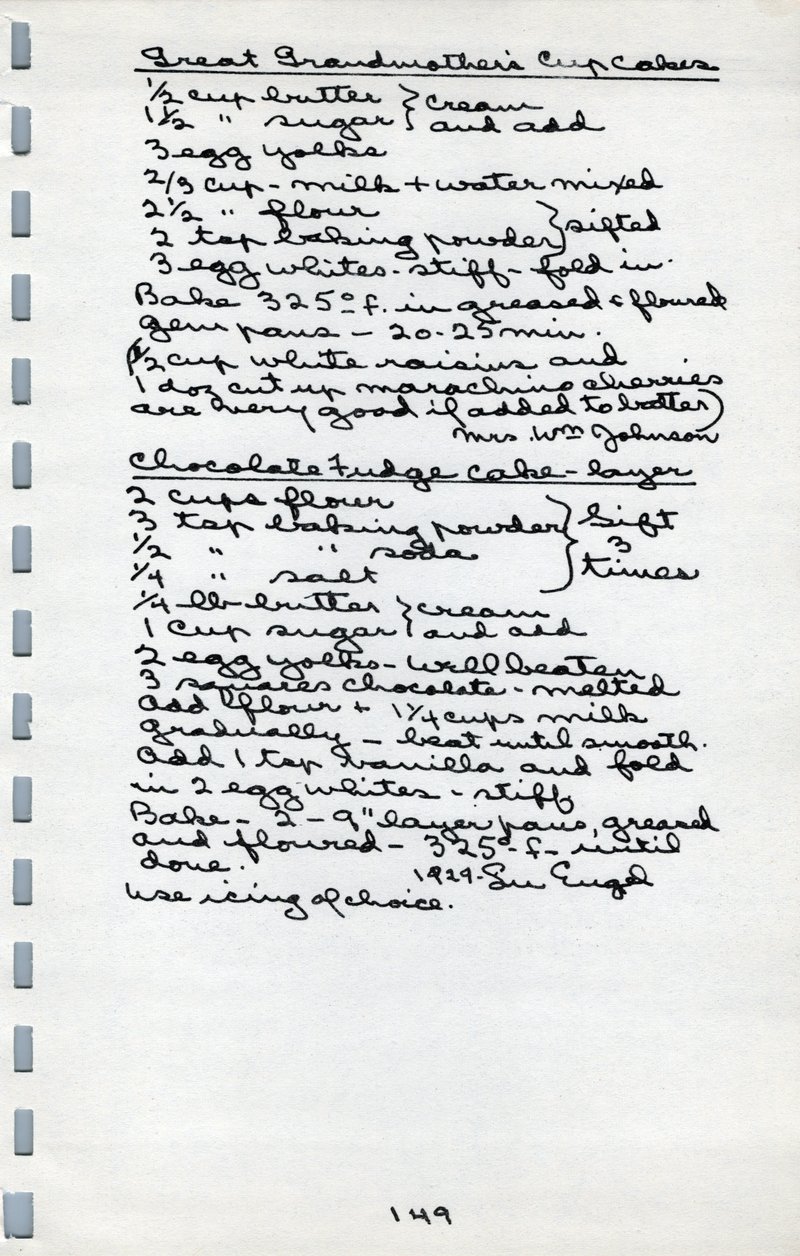 Great Grandmother's Cup Cakes
1/2 cup butter } cream
1 1/2 " sugar } and add
3 egg yolks
2/3 cup - milk + water mixed
2 1/2 " flour
2 tsp baking powder } sifted
3 egg whites - stiff - fold in.
Bake 325° f. in greased & floured
gem pans - 20-25 min.
(1/2 cup white raisins and
1 doz cut up marachino cherries
are very good if added to batter)
Mrs. Wm Johnson
Chocolate Fudge Cake - layer
2 cups flour
3 tsp baking powder } Sift
1/2 " " soda } 3
1/4 " salt } times
1/4 lb butter } cream
1 cup sugar } and add
2 egg yolks - well beaten
3 squares chocolate - melted
add flour + 1 1/4 cups milk
gradually - beat until smooth.
Add 1 tsp vanilla and fold
in 2 egg whites - stiff
Bake - 2 - 9" layer pans, greased
and floured - 325° f - until
done. 1929 - Su Engel
Use icing of choice.
149